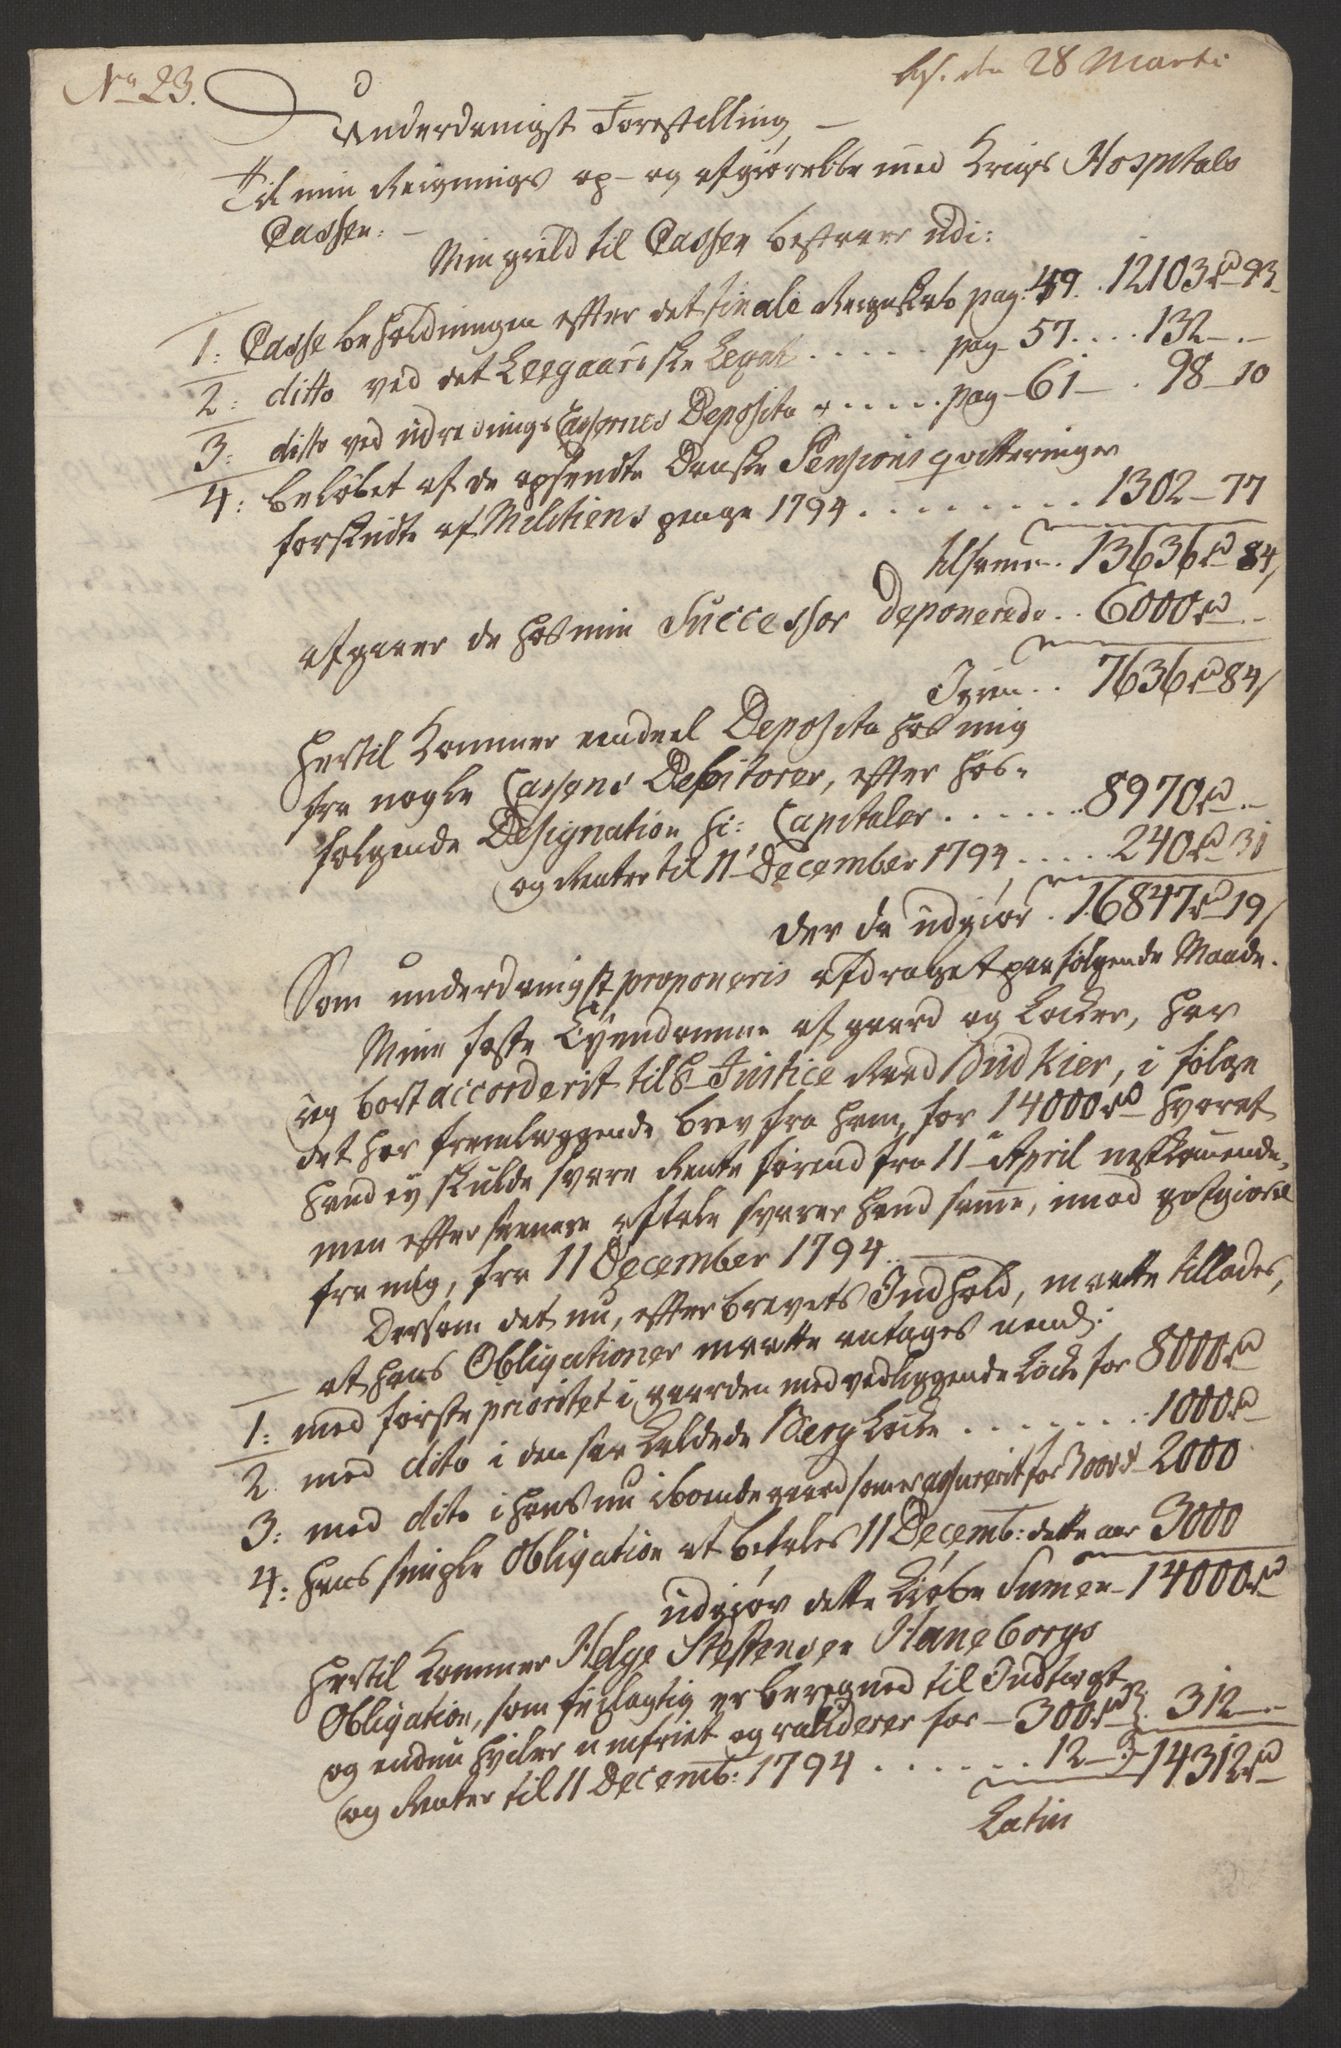 No 23.
bs. den 28 Marti
Underdanigst Forestilling
Til min Reignings op- og afgiørelse med Krigs Hospitals
Cassen.
Min gield til Cassen bestaaer udi:
1: Casse beholdningen efter det finale Reignskab pag: 49. . 12103 rd 93
2: ditto ved det Leegaardske Legat . . . . . pag 57. . . . 132 - . -
3: ditto ved udrednings Cassernes Deposita . . . . . pag - 61 - . 98 - 10
4: beløbet af de opsendte Danske Pensions qvitteringer
forskudte af Militiens penge 1794 . . . . . . . . . 1302 - 77
tilsamen. 13636 rd 84/
afgaaer de hos min Successor deponerede . . 6000 rd . -
Igien . . 7636 rd 84/
hertil kommer eendeel Deposita hos mig
fra nogle Cassens Debitorer, efter hos-
følgende Designation hi: Capitaler . . . . . . 8970 rd . -
og Renter til 11 December 1794 . . . . . 240 rd 31
der da udgiør . 16847 rd 19/
Som underdanigst proponeris afdraget paa følgende Maade.
Mine faste Eyendomme af gaard og Løcker, har
jeg bort accorderit til Hr Justice Raad Budkier, i følge
det her fremlæggende brev fra ham, for 14000 rd hvoraf
hand ey skulde svare Rente førend fra 11 April nestkomende,
men efter seenere aftale svarer hand same, imod godgiørelse
fra mig, fra 11 December 1794.
Dersom det nu, efter brevets Indhold, maatte tillades,
at hans Obligationer maatte antages nemlig:
1: med første prioritet i gaarden med vedliggende Løcke for 8000 rd
2. med dito i den saa kaldede Berg Løcke . . . . . . . . 1000 rd
3: med dito i hans nu iboende gaard som er assurerit for 3000 rd 2000
4: hans simple Obligation at betales 11 Decemb: dette aar 3000
udgiør dette Kiøbe Summen - 14000 rd
hertil kommer Helge Steffensen Haneborgs
Obligation, som feilagtig er beregned til Indtægt
og endnu hviler u-indfriet og validerer for - 300 rd } . 312 - . -
og Renter til 11 Decemb: 1794 . . . . . . . 12 - } 14312 rd
Latus